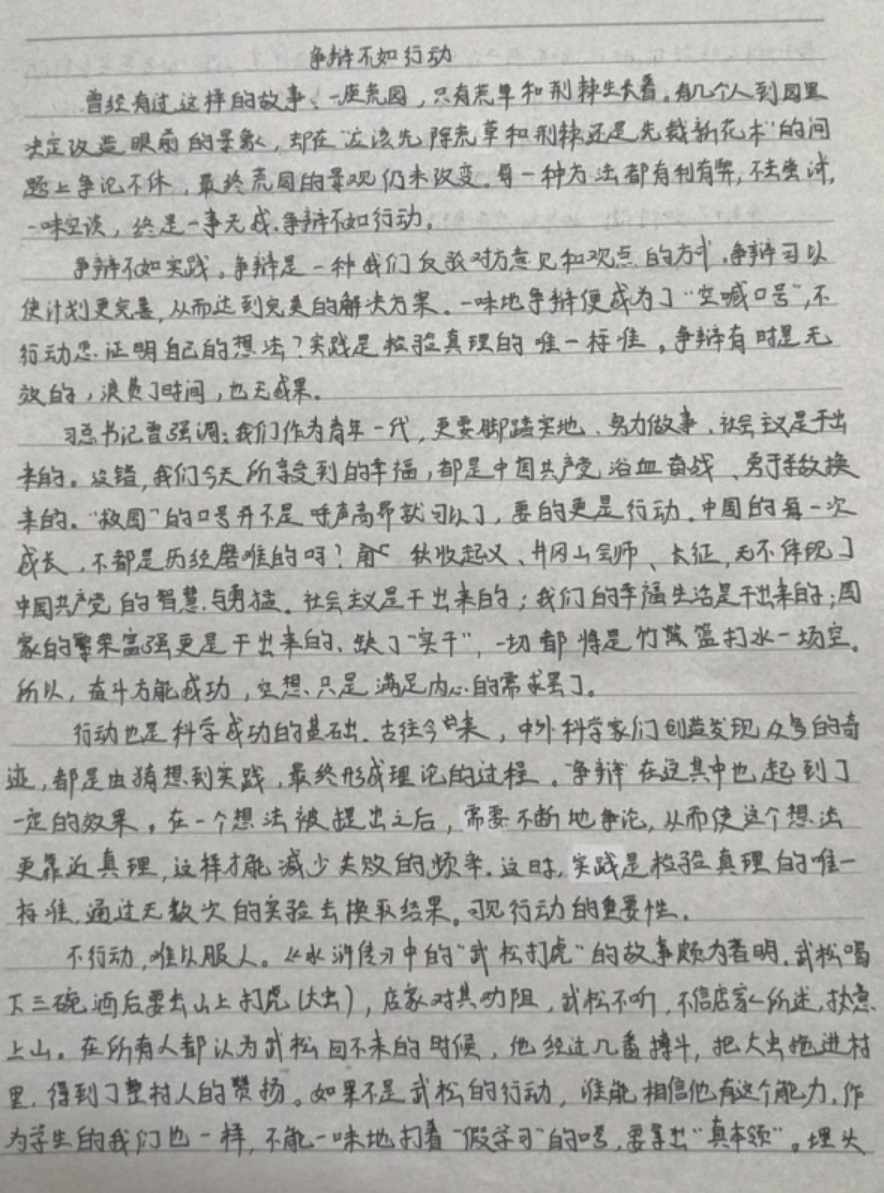 争辩不如行动
曾经有过这样的故事:一座荒园,只有荒草和荆棘生长着。有几个人到园里
决定改造眼前的景象,却在“应该先除荒草和荆棘还是先栽新花木”的问
题上争论不休,最终荒园的景观仍未改变。每一种方法都有利有弊,不去尝试,
一味空谈,终是一事无成。争辩不如行动。
争辩不如实践。争辩是一种我们反驳对方意见和观点的方式,争辩可以
使计划更完善,从而达到完美的解决方案。一味地争辩便成为了“空喊口号”,不
行动怎证明自己的想法?实践是检验真理的唯一标准。争辩有时是无
效的,浪费了时间,也无成果。
习总书记曾强调:我们作为青年一代,更要脚踏实地、努力做事,社会主义是干出
来的。没错,我们今天所享受到的幸福,都是中国共产党浴血奋战、勇于拼敌换
来的。“救国”的口号并不是呼声高昂就可以了,要的更是行动。中国的每一次
成长,不都是历经磨难的吗?秋收起义、井冈山会师、长征,无不体现了
中国共产党的智慧与勇猛。社会主义是干出来的;我们的幸福生活是干出来的;国
家的繁荣富强更是干出来的、缺了“实干”,一切都将是竹篮打水一场空。
所以,奋斗方能成功,空想只是满足内心的需求罢了。
行动也是科学成功的基础。古往今来,中外科学家们创造发现众多的奇
迹,都是由猜想到实践,最终形成理论的过程。“争辩”在这其中也起到了
一定的效果。在一个想法被提出之后,需要不断地争论,从而使这个想法
更靠近真理,这样才能减少失败的频率。这时,实践是检验真理的唯一
标准,通过无数次的实验去换取结果。可见行动的重要性。
不行动,难以服人。《水浒传》中的“武松打虎”的故事颇为著明。武松喝
下三碗酒后要去山上打虎(大虫),店家对其劝阻,武松不听,不信店家所述,执意
上山。在所有人都认为武松回不来的时候,他经过几番搏斗,把大虫拖进村
里,得到了整村人的赞扬。如果不是武松的行动,谁能相信他有这个能力。作
为学生的我们也一样,不能一味地打着“假学习”的口号,要拿出“真本领”。埋头